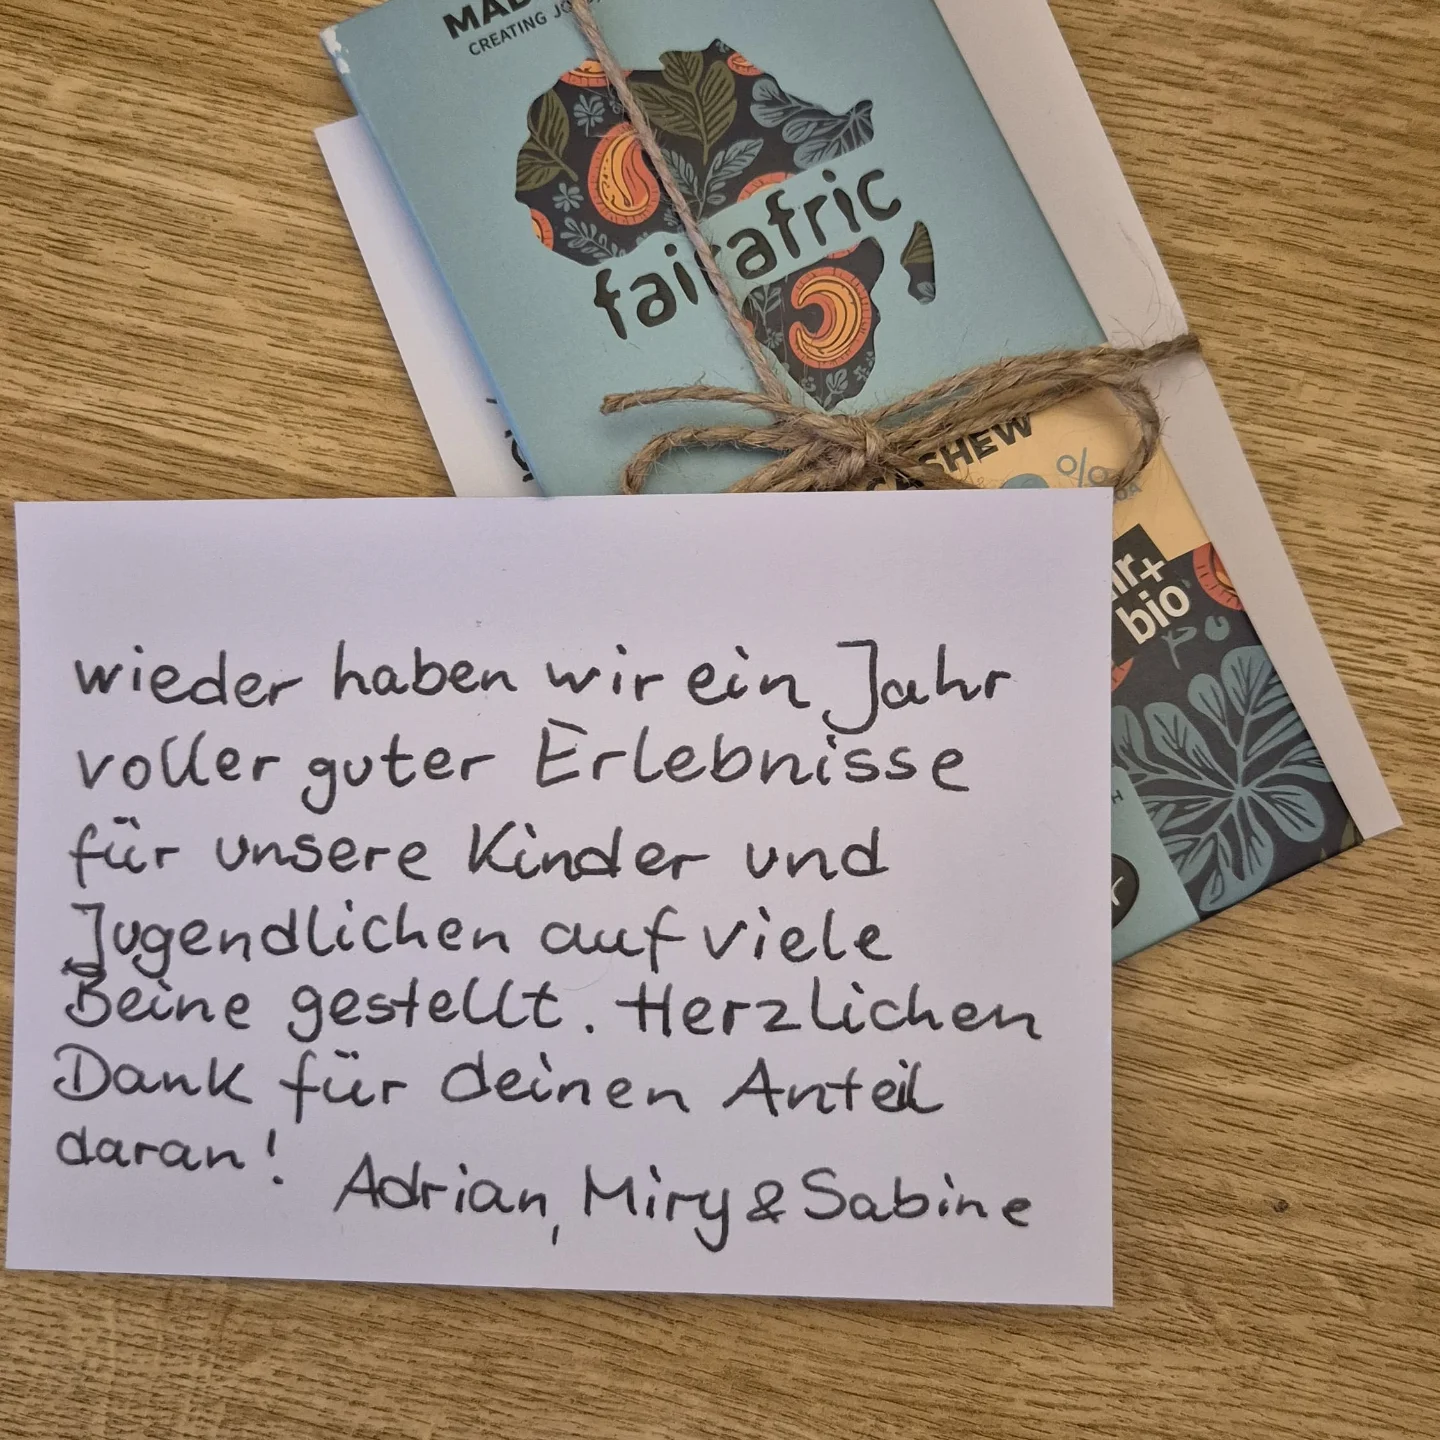 CREATING
fairafric
CASHEW
%
bio
wieder haben wir ein Jahr
voller guter Erlebnisse
für unsere Kinder und
Jugendlichen auf viele
Beine gestellt. Herzlichen
Dank für deinen Anteil
daran!
Adrian, Miry & Sabine